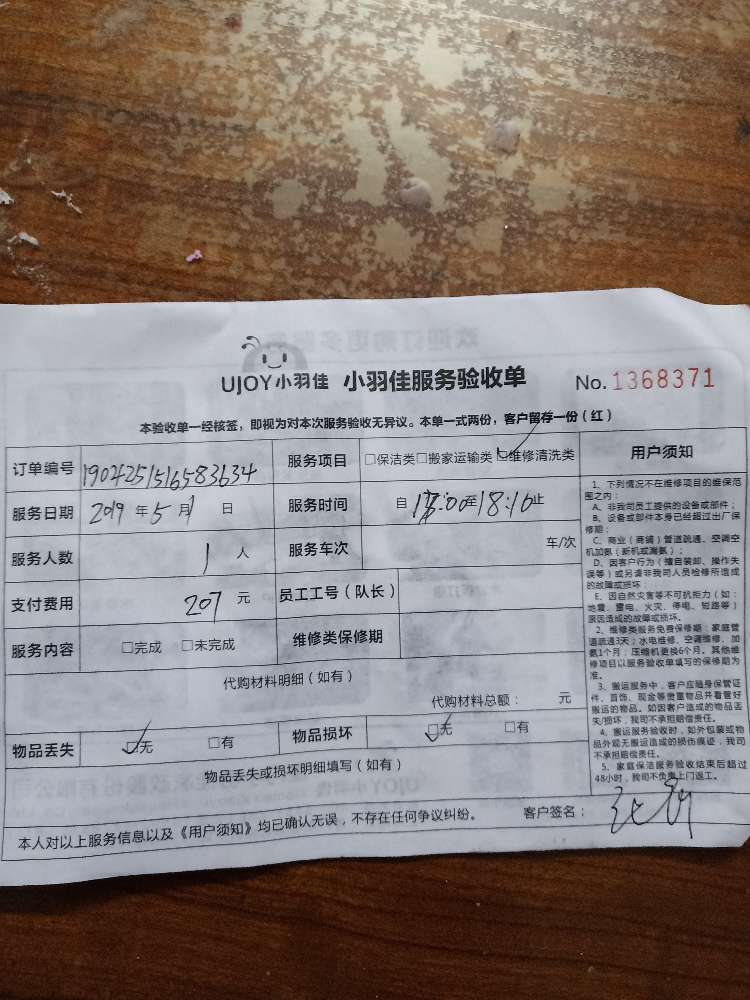 UJOY小羽佳 小羽佳服务验收单 No. 1368371
本验收单一经核签，即视为对本次服务验收无异议。本单一式两份，客户留存一份（红）
订单编号 1904251516583634 服务项目 □保洁类□搬家运输类☑维修清洗类
服务日期 2019 年 5 月 1 日 服务时间 自 至18:10止
服务人数 1 人 服务车次 车/次
支付费用 207 元 员工工号（队长）
服务内容 □完成 □未完成 维修类保修期
代购材料明细（如有）
代购材料总额： 元
物品丢失 ☑无 □有 物品损坏 ☑无 □有
物品丢失或损坏明细填写（如有）
本人对以上服务信息以及《用户须知》均已确认无误，不存在任何争议纠纷。 客户签名：
用户须知
1、下列情况不在维修项目的维保范
围之内：
A、非我司员工提供的设备或部件；
B、设备或部件本身已经超过出厂保
修期；
C、商业（商铺）管道疏通、空调空
机加氨（新机或漏氨）；
D、因客户行为（擅自装卸、操作失
误等）或另请非我司人员检修所造成
的故障或损坏；
E、因自然灾害等不可抗拒力（如：
地震、雷电、火灾、停电、短路等）
原因造成的故障或损坏。
2、维修类服务免费保修期：家庭管
道疏通3天；水电维修、空调维修、加
氨1个月；压缩机更换6个月。其他维
修项目以服务验收单填写的保修期为
准。
3、搬运服务中，客户应随身保管证
件、首饰、现金等贵重物品并看管好
搬运的物品。如因客户造成的物品丢
失/损坏，我司不承担赔偿责任。
4、搬运服务验收时，如外包装或物
品外观无搬运造成的损伤痕迹，我司
不承担赔偿责任。
5、家庭保洁服务验收结束后超过
48小时，我司不负责上门返工。